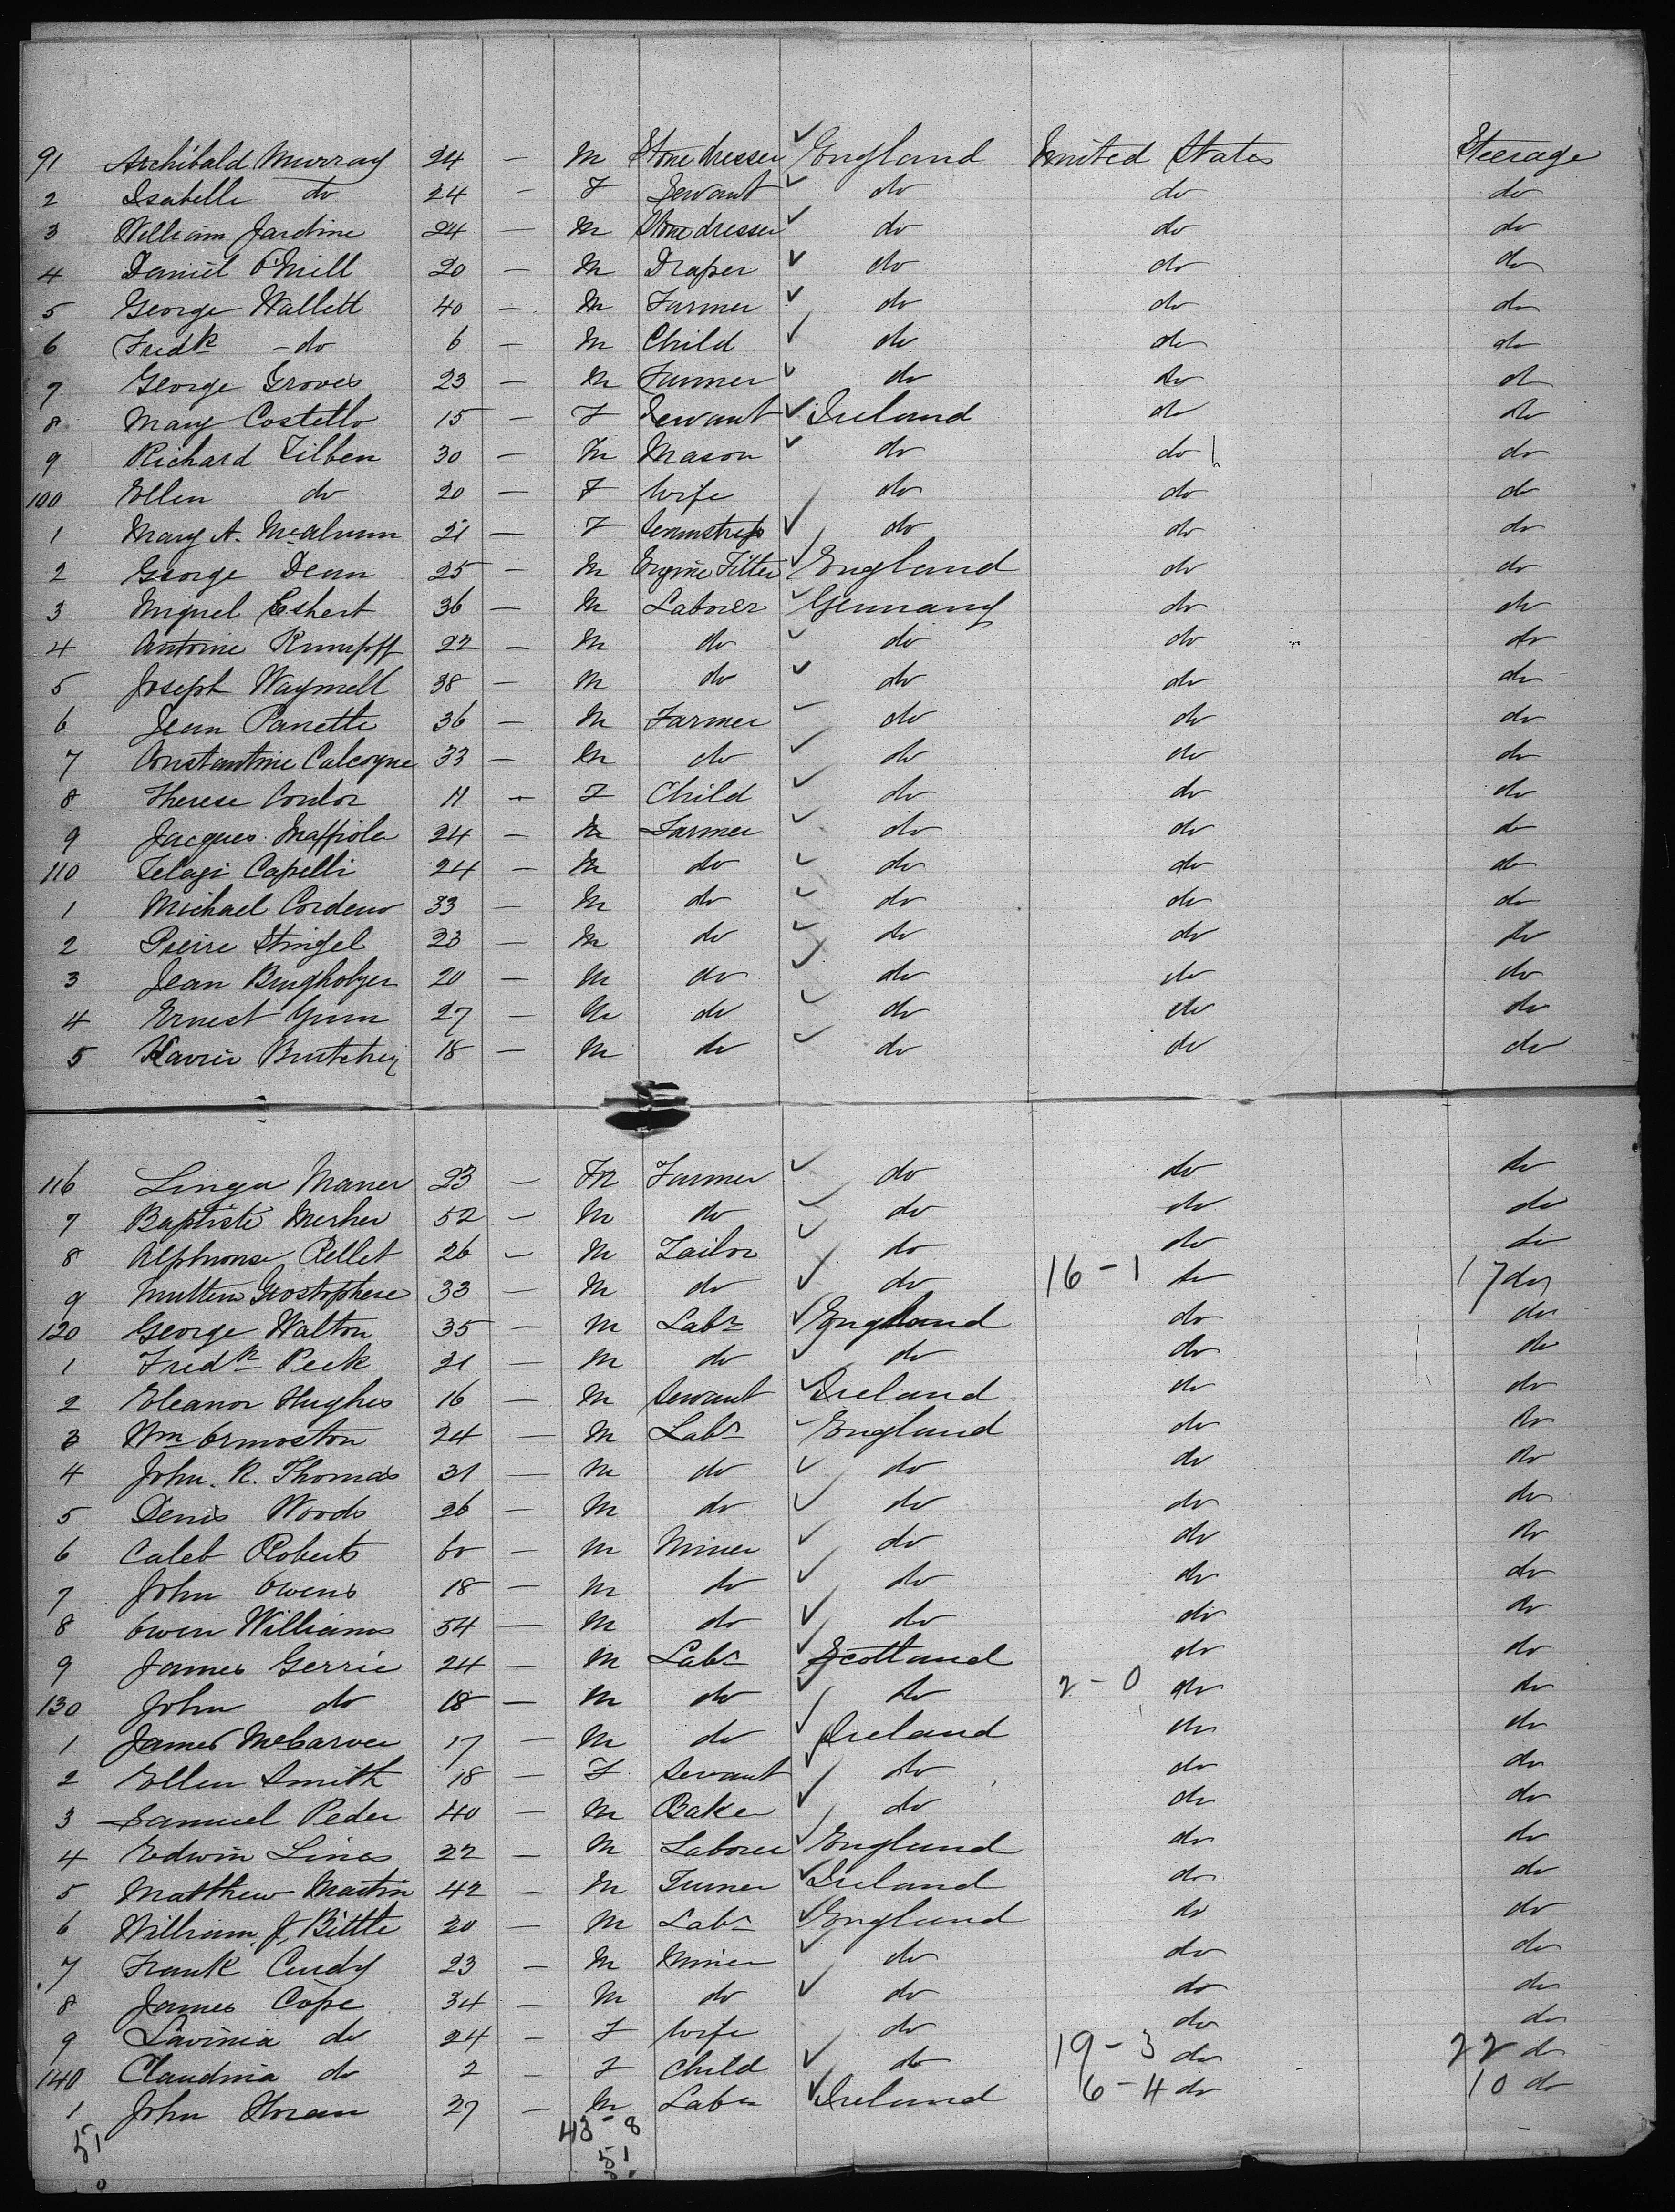 91 Archibald Murray 24 — M Stone dresser ✓ England United States Steerage
2 Isabella do 24 — F Servant ✓ do do do
3 William Jardine 24 — M Stone dresser ✓ do do do
4 Daniel O'Neill 20 — M Draper ✓ do do do
5 George Wallett 40 — M Farmer ✓ do do do
6 Fredk — do 6 — M Child ✓ do do do
7 George Groves 23 — M Farmer ✓ do do do
8 Mary Costello 15 — F Servant ✓ Ireland do do
9 Richard Tilben 30 — M Mason ✓ do do do
100 Ellen do 20 — F Wife do do do
1 Mary A. 21 — F Seamstress ✓ do do do
2 George Dean 25 — M Engine Fitter ✓ England do do
3 Miguel Eshert 36 — M Laborer ✓ Germany do do
4 Antoine Rumpff 22 — M do ✓ do do do
5 Joseph Waymell 38 — M do ✓ do do do
6 Jean Panette 36 — M Farmer ✓ do do do
7 Constantine Calcogne 33 — M do ✓ do do do
8 Therese Coulor 11 — F Child ✓ do do do
9 Jacques Maffiola 24 — M Farmer ✓ do do do
110 Capelli 24 — M do ✓ do do do
1 Michael Cordeno 33 — M do ✓ do do do
2 Pierre Stingel 23 — M do ✓ do do do
3 Jean Burgholzer 20 — M do ✓ do do do
4 Ernest 27 — M do ✓ do do do
5 Xavier 18 — M do ✓ do do do
116 Maner 23 — M Farmer ✓ do do do
7 Baptiste Mesher 52 — M do ✓ do do do
8 Alphonse Pellet 26 — M Tailor ✓ do do do
9 33 — M do ✓ do 16 - 1 do 17 do
120 George Walton 35 — M Labr ✓ England do do
1 Fredk Peek 21 — M do ✓ do do do
2 Eleanor Hughes 16 — M Servant ✓ Ireland do do
3 Wm Ormoston 24 — M Labr ✓ England do do
4 John. R. Thomas 31 — M do ✓ do do do
5 Denis Woods 26 — M do ✓ do do do
6 Caleb Roberts 60 — M Miner ✓ do do do
7 John Owens 18 — M do ✓ do do do
8 Owen Williams 54 — M do ✓ do do do
9 James Gerrie 24 — M Labr ✓ Scotland do do
130 John do 18 — M do ✓ do 2 - 0 do do
1 James McCarver 17 — M do ✓ Ireland do do
2 Ellen Smith 18 — F Servant ✓ do do do
3 Samuel Peder 40 — M Baker ✓ do do do
4 Edwin Lines 22 — M Laborer ✓ England do do
5 Matthew Martin 42 — M Turner ✓ Ireland do do
6 William J. Bittle 20 — M Labr ✓ England do do
7 Frank Cundy 23 — M Miner ✓ do do do
8 James Cope 34 — M do ✓ do do do
9 Lavinia do 24 — F Wife do do do
140 Claudinia do 2 — F Child ✓ do 19 - 3 do 22 do
1 John Horan 37 — M Labr ✓ Ireland 6 - 4 do 10 do
51 43 - 8
51